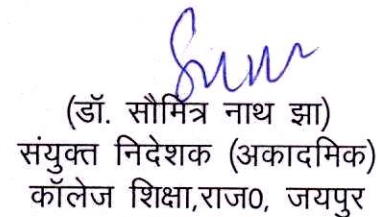 (डॉ. सौमित्र नाथ झा)
संयुक्त निदेशक (अकादमिक)
कॉलेज शिक्षा,राज0, जयपुर